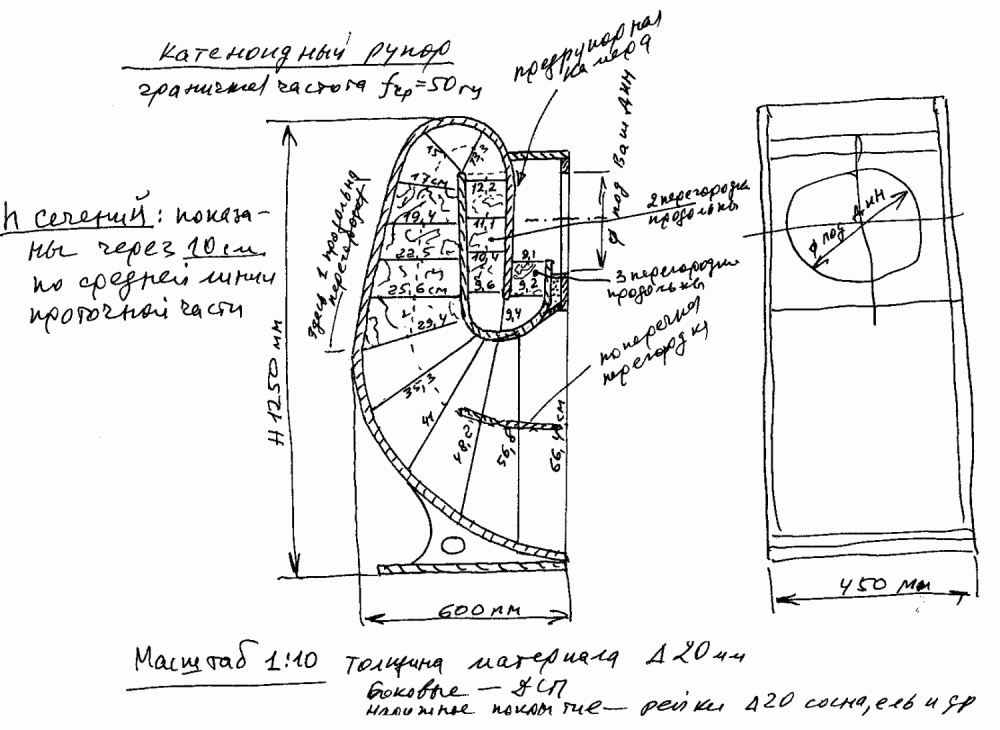 Катеноидный рупор
граничная частота fгр=50гц
предрупорная
камера
ф под ваш дин
h сечений: показа-
ны через 10 см
по средней линии
проточной части
здесь 1 продольна
перегородка
H 1250 мм
15
13,3
17см
12,2
19,4
11,1
22,5
10,4
25,6см
9,6
9,1
9,2
9,4
29,4
35,3
41
48,2
56,8
66,4 см
2 перегородки
продольны
3 перегородки
продольны
поперечная
перегородка
ф под дин
600мм
450 мм
Масштаб 1:10 толщина материала Δ20мм
боковые — ДСП
наружное покрытие — рейки Δ20 сосна, ель и др